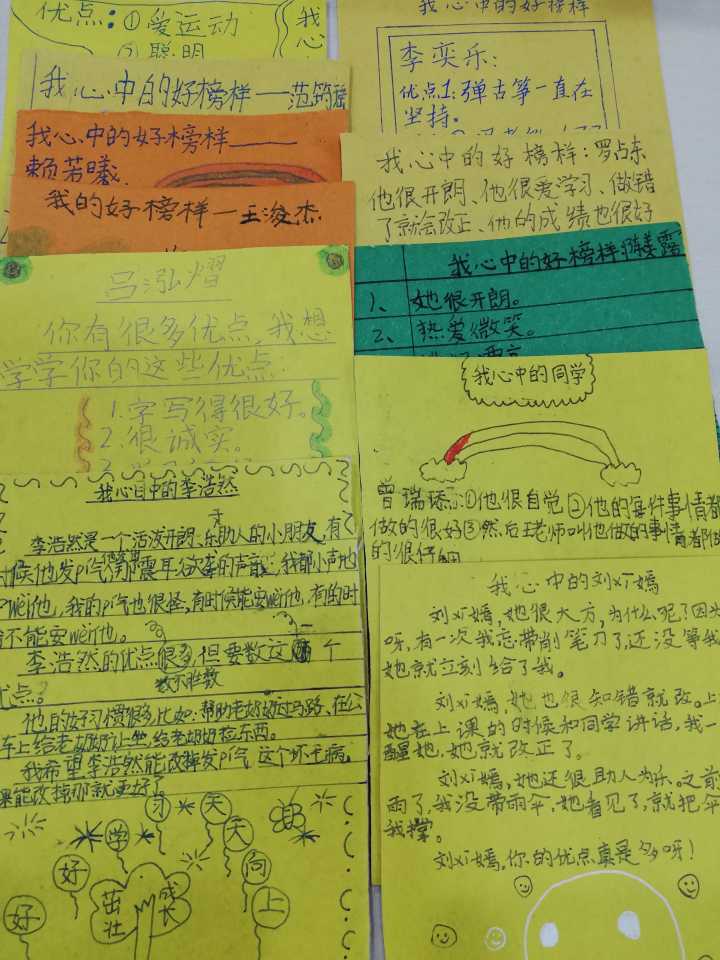 优点：①爱运动
②聪明
我
心
我心中的好榜样——范筠
我心中的好榜样——
赖若曦
我的好榜样—王浚杰
吕泓熠
你有很多优点，我想
学学你的这些优点：
1.字写得很好。
2.很诚实。
我心目中的李浩然
李浩然是一个活泼开朗、乐于助人的小朋友，有
时候他发pí气，那震耳欲聋的声音，我都小声地
wèi他，我的pí气也很怪，有时候能安wèi他，有的时
不能安wèi他。
李浩然的优点很多，但要数这个
优点。
数不胜数
他的好习惯很多，比如：帮助老奶奶过马路、在公
车上给老奶奶让坐，给老奶奶捡东西。
我希望李浩然能改掉发pí气，这个坏毛病，
果能改掉那就更好了
好好学习天天向上
茁壮
成长
我心中的好榜样
李奕乐：
优点1：弹古筝一直在
坚持。
我心中的好榜样：罗占东
他很开朗、他很爱学习、做错
了就会改正、他的成绩也很好
我心中的好榜样
1、她很开朗。
2、热爱微笑。
我心中的同学
曾瑞：①他很自觉②他的每件事情都
做的很好③然后王老师叫他做的事情都做
的很仔细
我心中的刘xī嫣
刘xī嫣，她很大方，为什么呢？因为
呀，有一次我忘带削笔刀了，还没等我
她就立刻给了我。
刘xī嫣，她也很知错就改。上
她在上课的时候和同学讲话，我一
醒她，她就改正了。
刘xī嫣，她还很助人为乐。之前
雨了，我没带雨伞，她看见了，就把伞
我撑。
刘xī嫣，你的优点真是多呀！